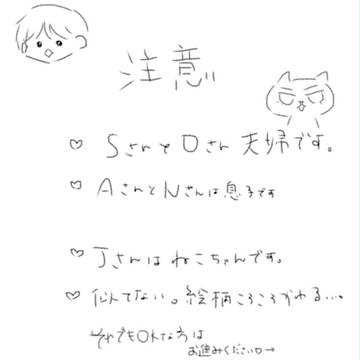 注意
♡ SさんとOさん夫婦です。
♡ AさんとNさんは息子です
♡ Jさんはねこちゃんです。
♡ 似てない。絵柄ころころかわる…。
それでもOKな方は
お進みください→